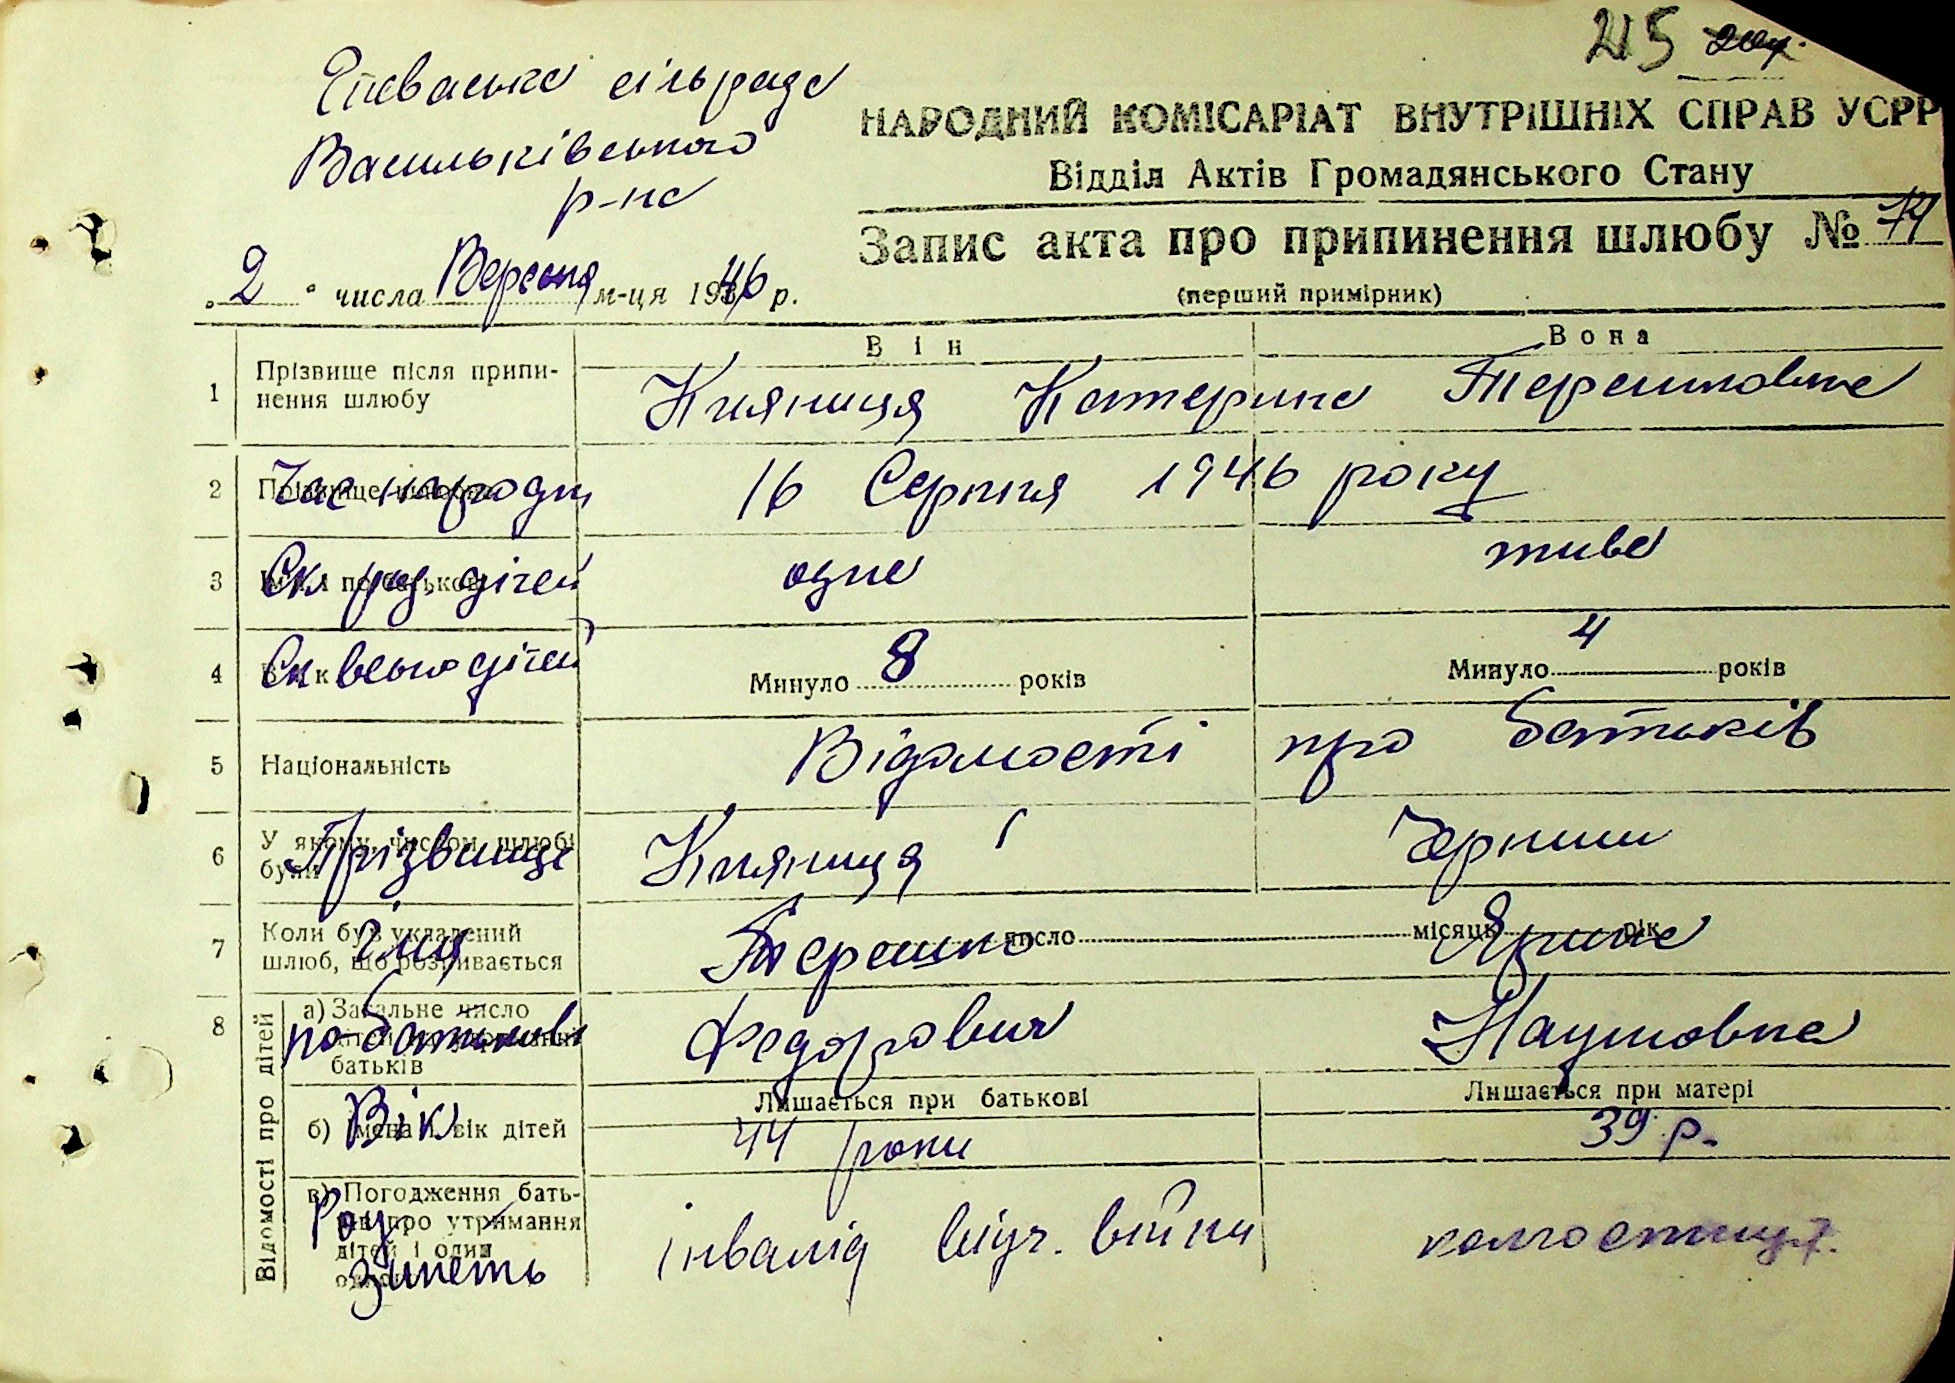 215 зах.
Єпеваська сільрада
Васильківського
р-на
НАРОДНИЙ КОМІСАРІАТ ВНУТРІШНІХ СПРАВ УСРР
Відділ Актів Громадянського Стану
Запис акта про припинення шлюбу № 74
"2" числа Вересня м-ця 1946 р.
(перший примірник)
Він Вона
1 Прізвище після припинення шлюбу Княниця Катерина Терешковна
2 Час народж 16 Серпня 1946 року
3 Ск. род. дітей одне живе
4 Ск всього дітей Минуло 8 років Минуло 4 років
5 Національність Відомості про батьків
6 У якому, числом, шлюбі були Прізвище Княниця Черниш
7 Коли був укладений шлюб, що розривається Імя Терешко число місяць рік Ярина
8 Відомості про дітей
а) Загальне число батьків по-батькові Федорович Наумовна
Лишається при батькові Лишається при матері
б) імена і вік дітей Вік 44 роки 39 р.
в) Погодження батьків про утримання дітей і один Род занять інвалід вітч. війни колгоспниця